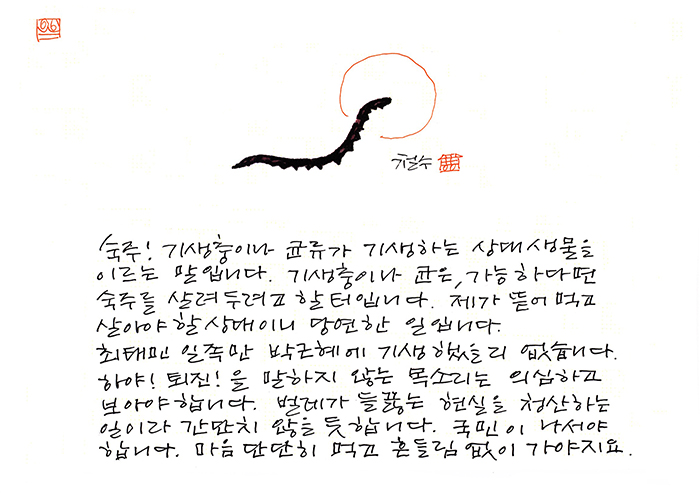 06
철수
숙주! 기생충이나 균류가 기생하는 상대생물을
이르는 말입니다. 기생충이나 균은, 가능하다면
숙주를 살려두려고 할 터입니다. 제가 뜯어 먹고
살아야 할 상대이니 당연한 일입니다.
최태민 일족만 박근혜에 기생했을리 없습니다.
하야! 퇴진!을 말하지 않는 목소리는 의심하고
보아야 합니다. 벌레가 들끓는 현실을 청산하는
일이라 간단치 않을 듯 합니다. 국민이 나서야
합니다. 마음 단단히 먹고 흔들림 없이 가야지요.